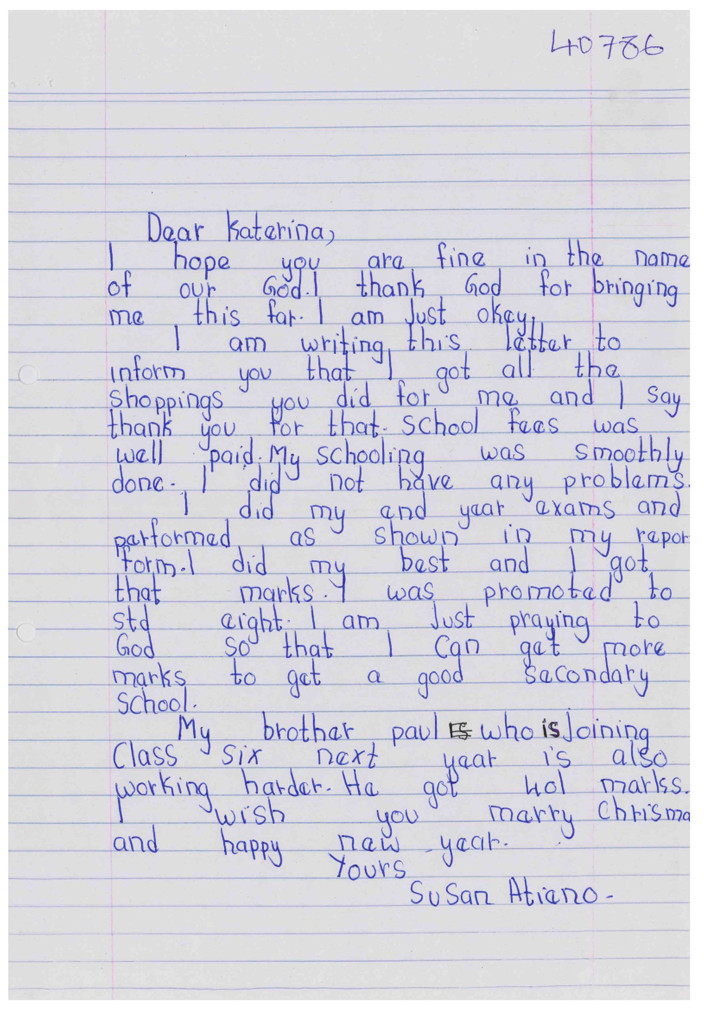 40786
Dear Katerina,
I hope you are fine in the name
of our God. I thank God for bringing
me this far. I am Just okey.
I am writing this letter to
inform you that I got all the
shoppings you did for me and I say
thank you for that. School fees was
well paid. My schooling was smoothly
done. I did not have any problems.
I did my end year exams and
performed as shown in my repor
form. I did my best and I got
that marks. I was promoted to
std eight. I am Just praying to
God so that I can get more
marks to get a good secondary
school.
My brother paul who is Joining
Class six next year is also
working harder. He got 401 marks.
I wish you marry Chrisma
and happy new year.
Yours
Susan Atieno.